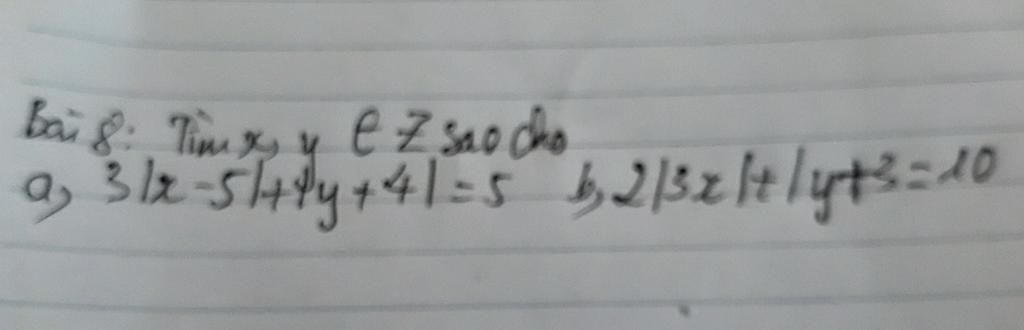 Bài 8: Tìm x, y ∈ Z sao cho
a, 3|x - 5| + |y + 4| = 5 b, 2|3x| + |y + 3 = 10